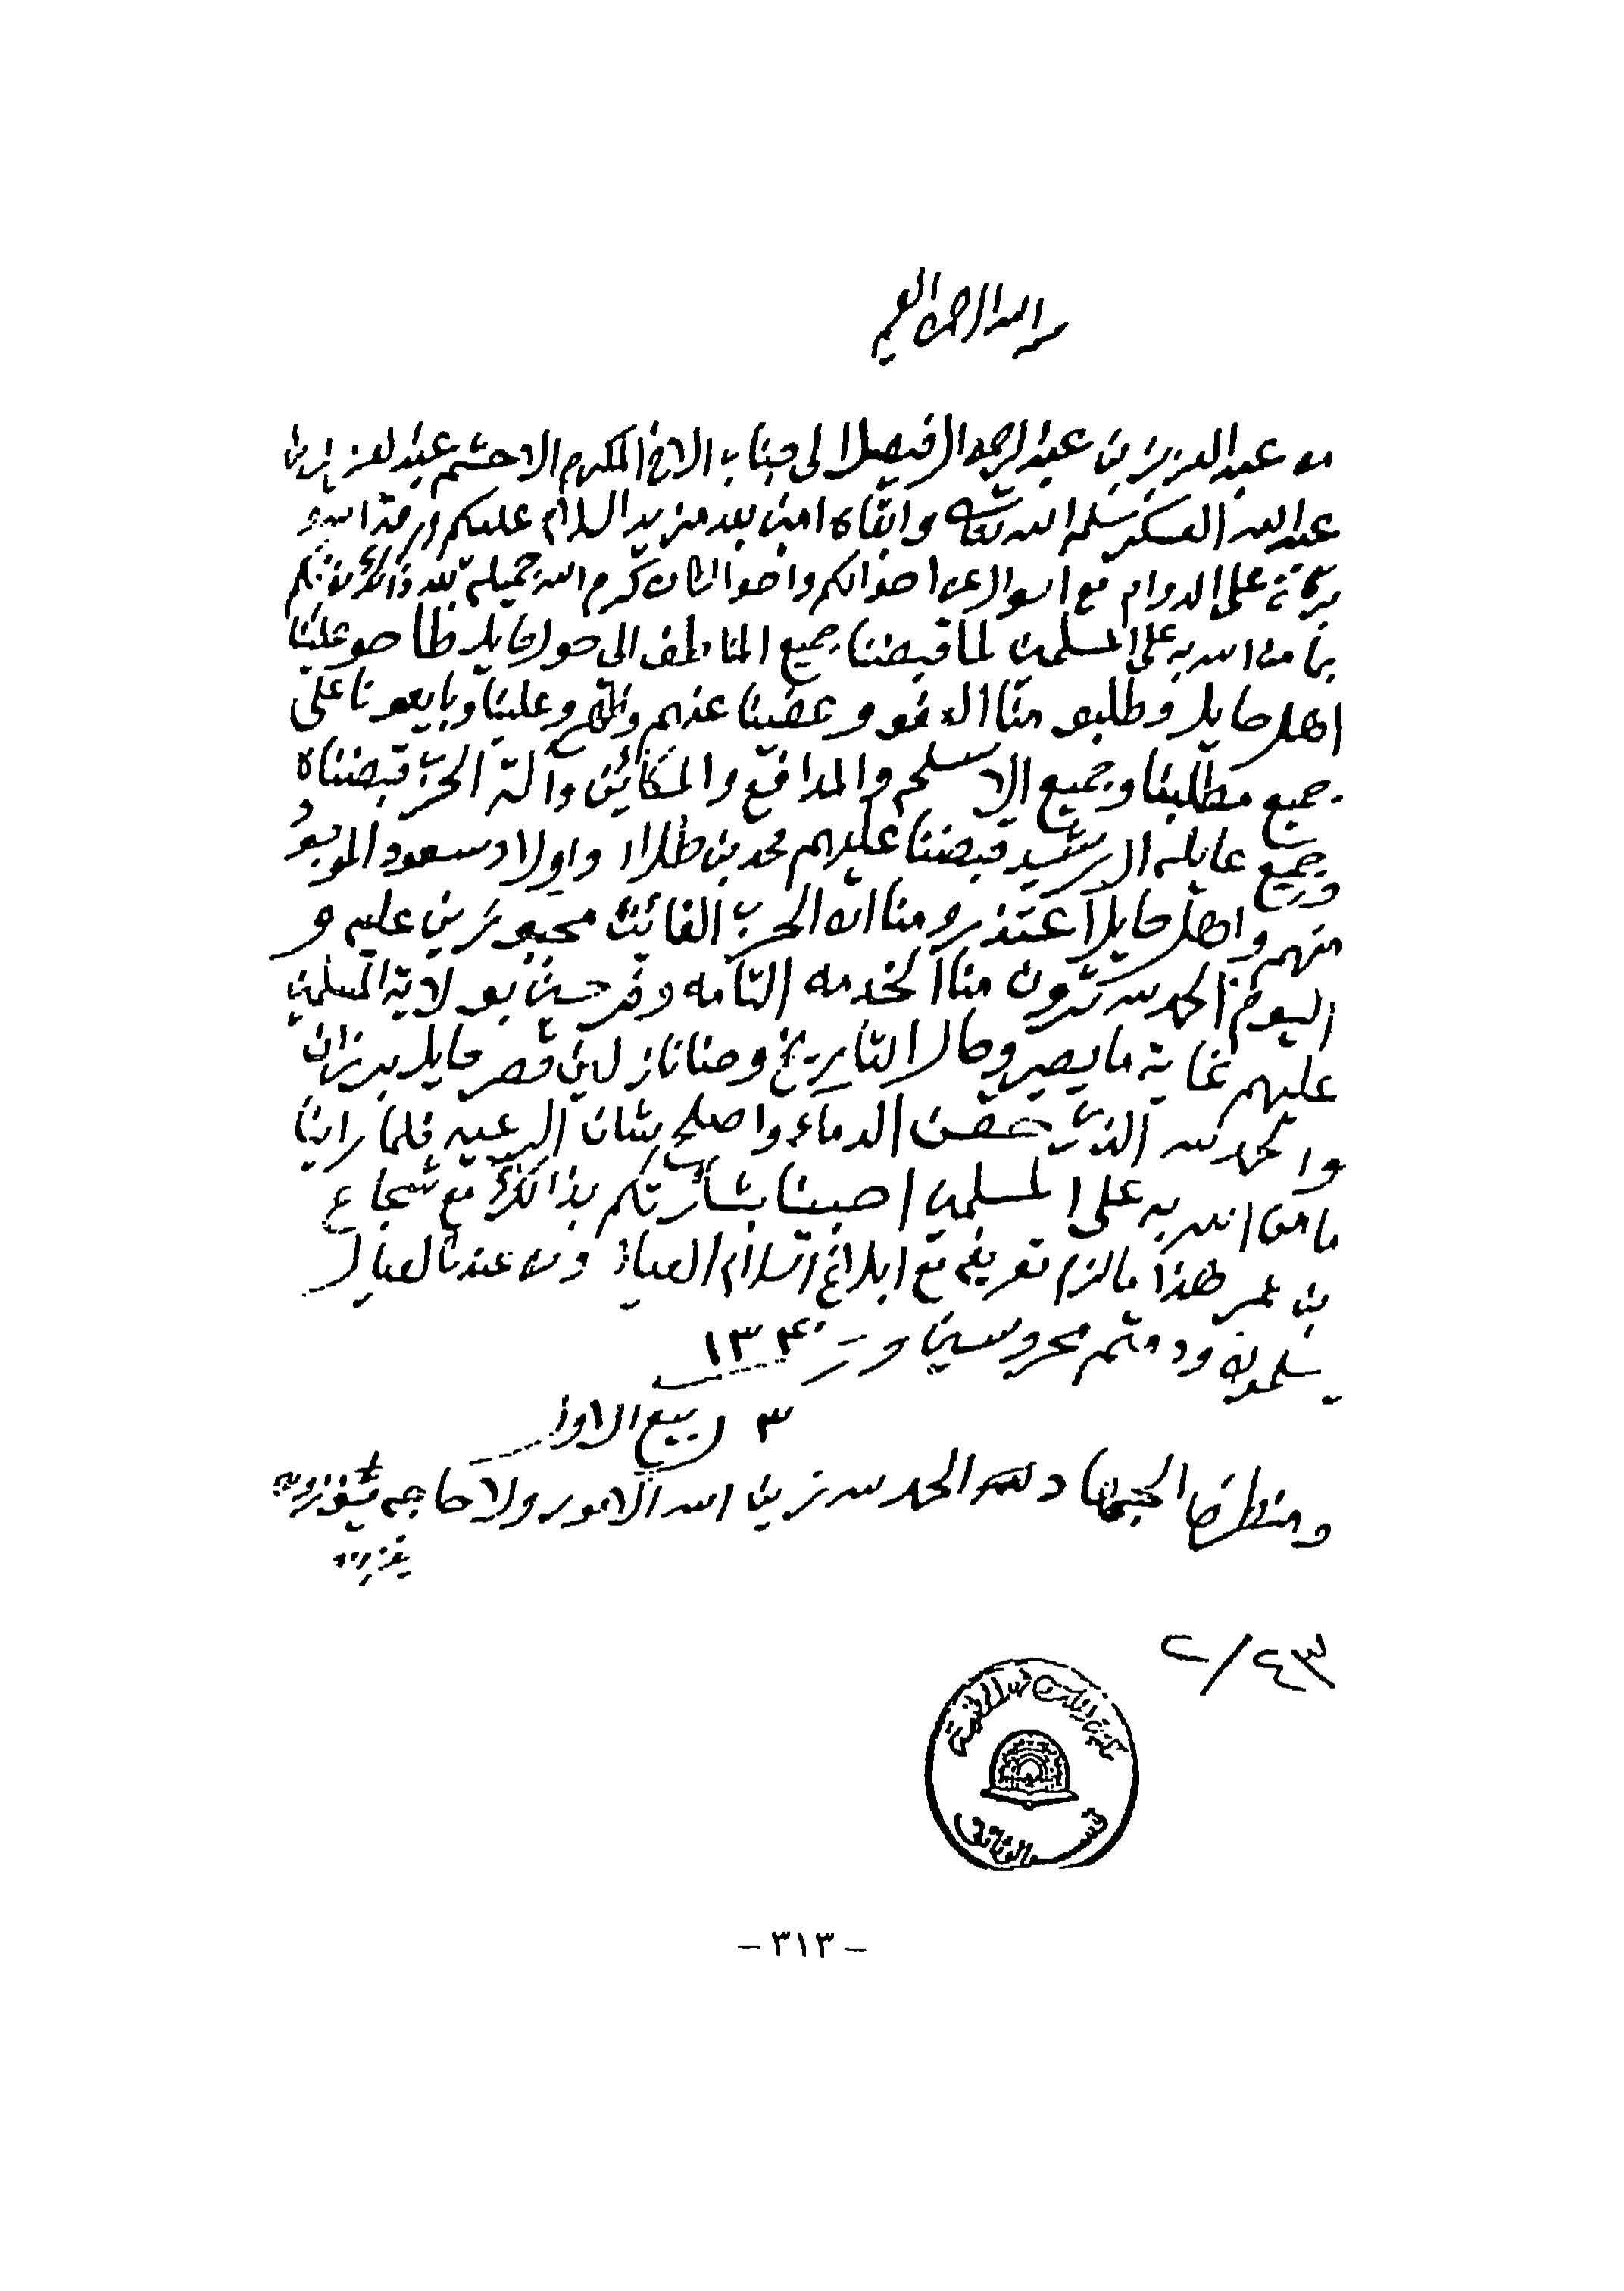 بسم الله الرحمن الرحيم
من عبد العزيز بن عبد الرحمن الفيصل الى جناب الاخ المكرم الاحشم عبد العزيز ابن
عبد الله العسكر سلمه الله تعالى وابقاه امين بعد مزيد السلام عليكم ورحمة الله و
بركاته على الدوام مع السوال عن احوالكم واحوالنا من كرم الله جميله بعد ذالك نبشركم
بما من الله به على المسلمين لما قبضنا جميع المناطف الى حول حايل طاحو علينا
اهل حايل وطلبو منا العفو وعفينا عنهم وظهرو علينا وبايعونا على
جميع مطلبنا وجميع الاسلحه والمدافع والمكاين وآلة الحرب قبضناه
وجميع عايلة الرشيد قبضنا عليهم محمد بن طلال واولاد سعود الموجود
منهم واهل حايل اعتذرو منا ان الحرب الفائت مجبورين عليه و
اليوم الحمد لله ترون منا الخدمه التامه وفرحين بولاية المسلمين
عليهم غاية ما يصير وحال التاريخ وحنا نازلين قصر حايل برزان
والحمد لله الذي حقن الدماء واصلح شان الرعيه فلما راينا
ما من الله به على المسلمين احبينا بشارتكم بذالك مع شجاع
بن عمر هذا ما لزم تعريفه مع ابلاغ السلام العيال ومن عندنا العيال
يسلمون ودمتم محروسين و ١٣٤٠
٣ ربيع الاول
ومن طرف الجهاد الحمد لله زين الله الامور ولا حاجه
٢/٤٣
قسم الوثائق
- ٣١٣ -